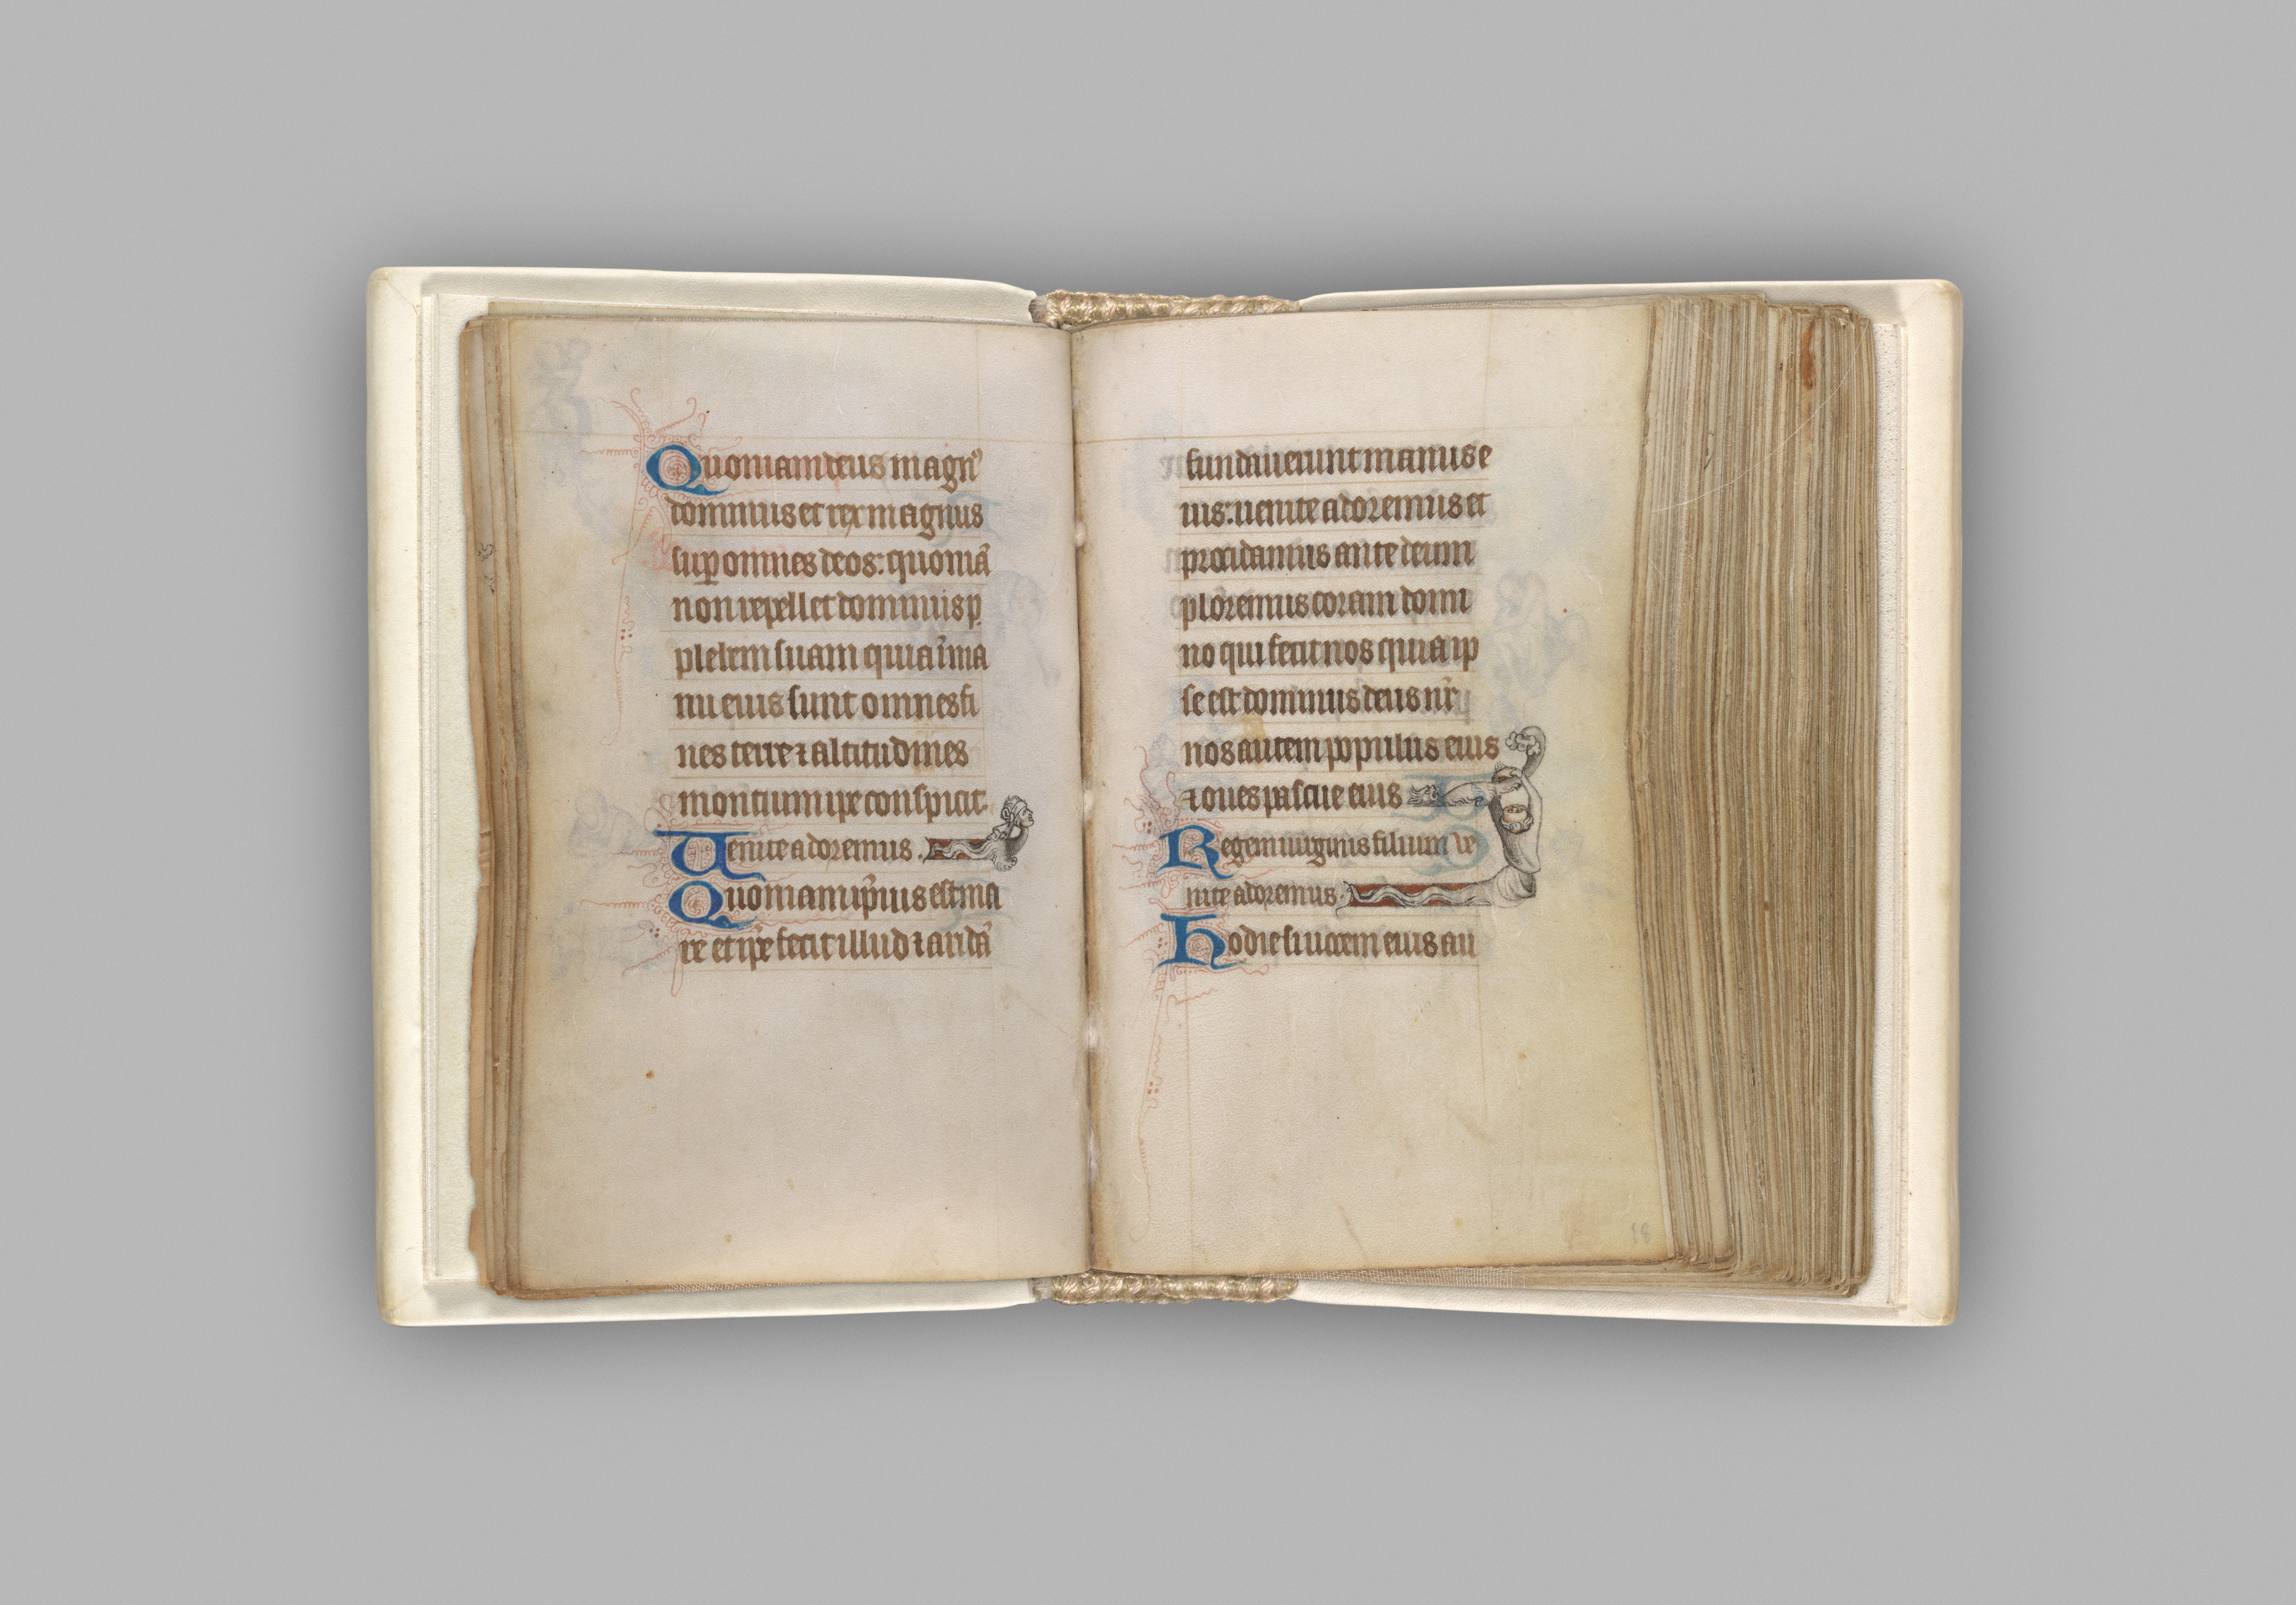 Quoniam deus magnꝰ
dominus et rex magnus
suꝑ omnes deos: quoniã
non repellet dominus p
plebem suam quia ĩ ma
nu eius sunt omnes fi
nes terre ⁊ altitudines
montium ipe conspicit
Venite adoremus.
Quoniam ip̃ius est ma
re et ip̃e fecit illud ⁊ aridã
fundauerunt manus e
ius: uenite adoremus et
procidamus ante deum
ploremus coram domi
no qui fecit nos quia ip
se est dominus deus nr̃
nos autem populus eius
⁊ oues pascue eius
Regem uirginis filium ve
nite adoremus.
Hodie si uocem eius au
18